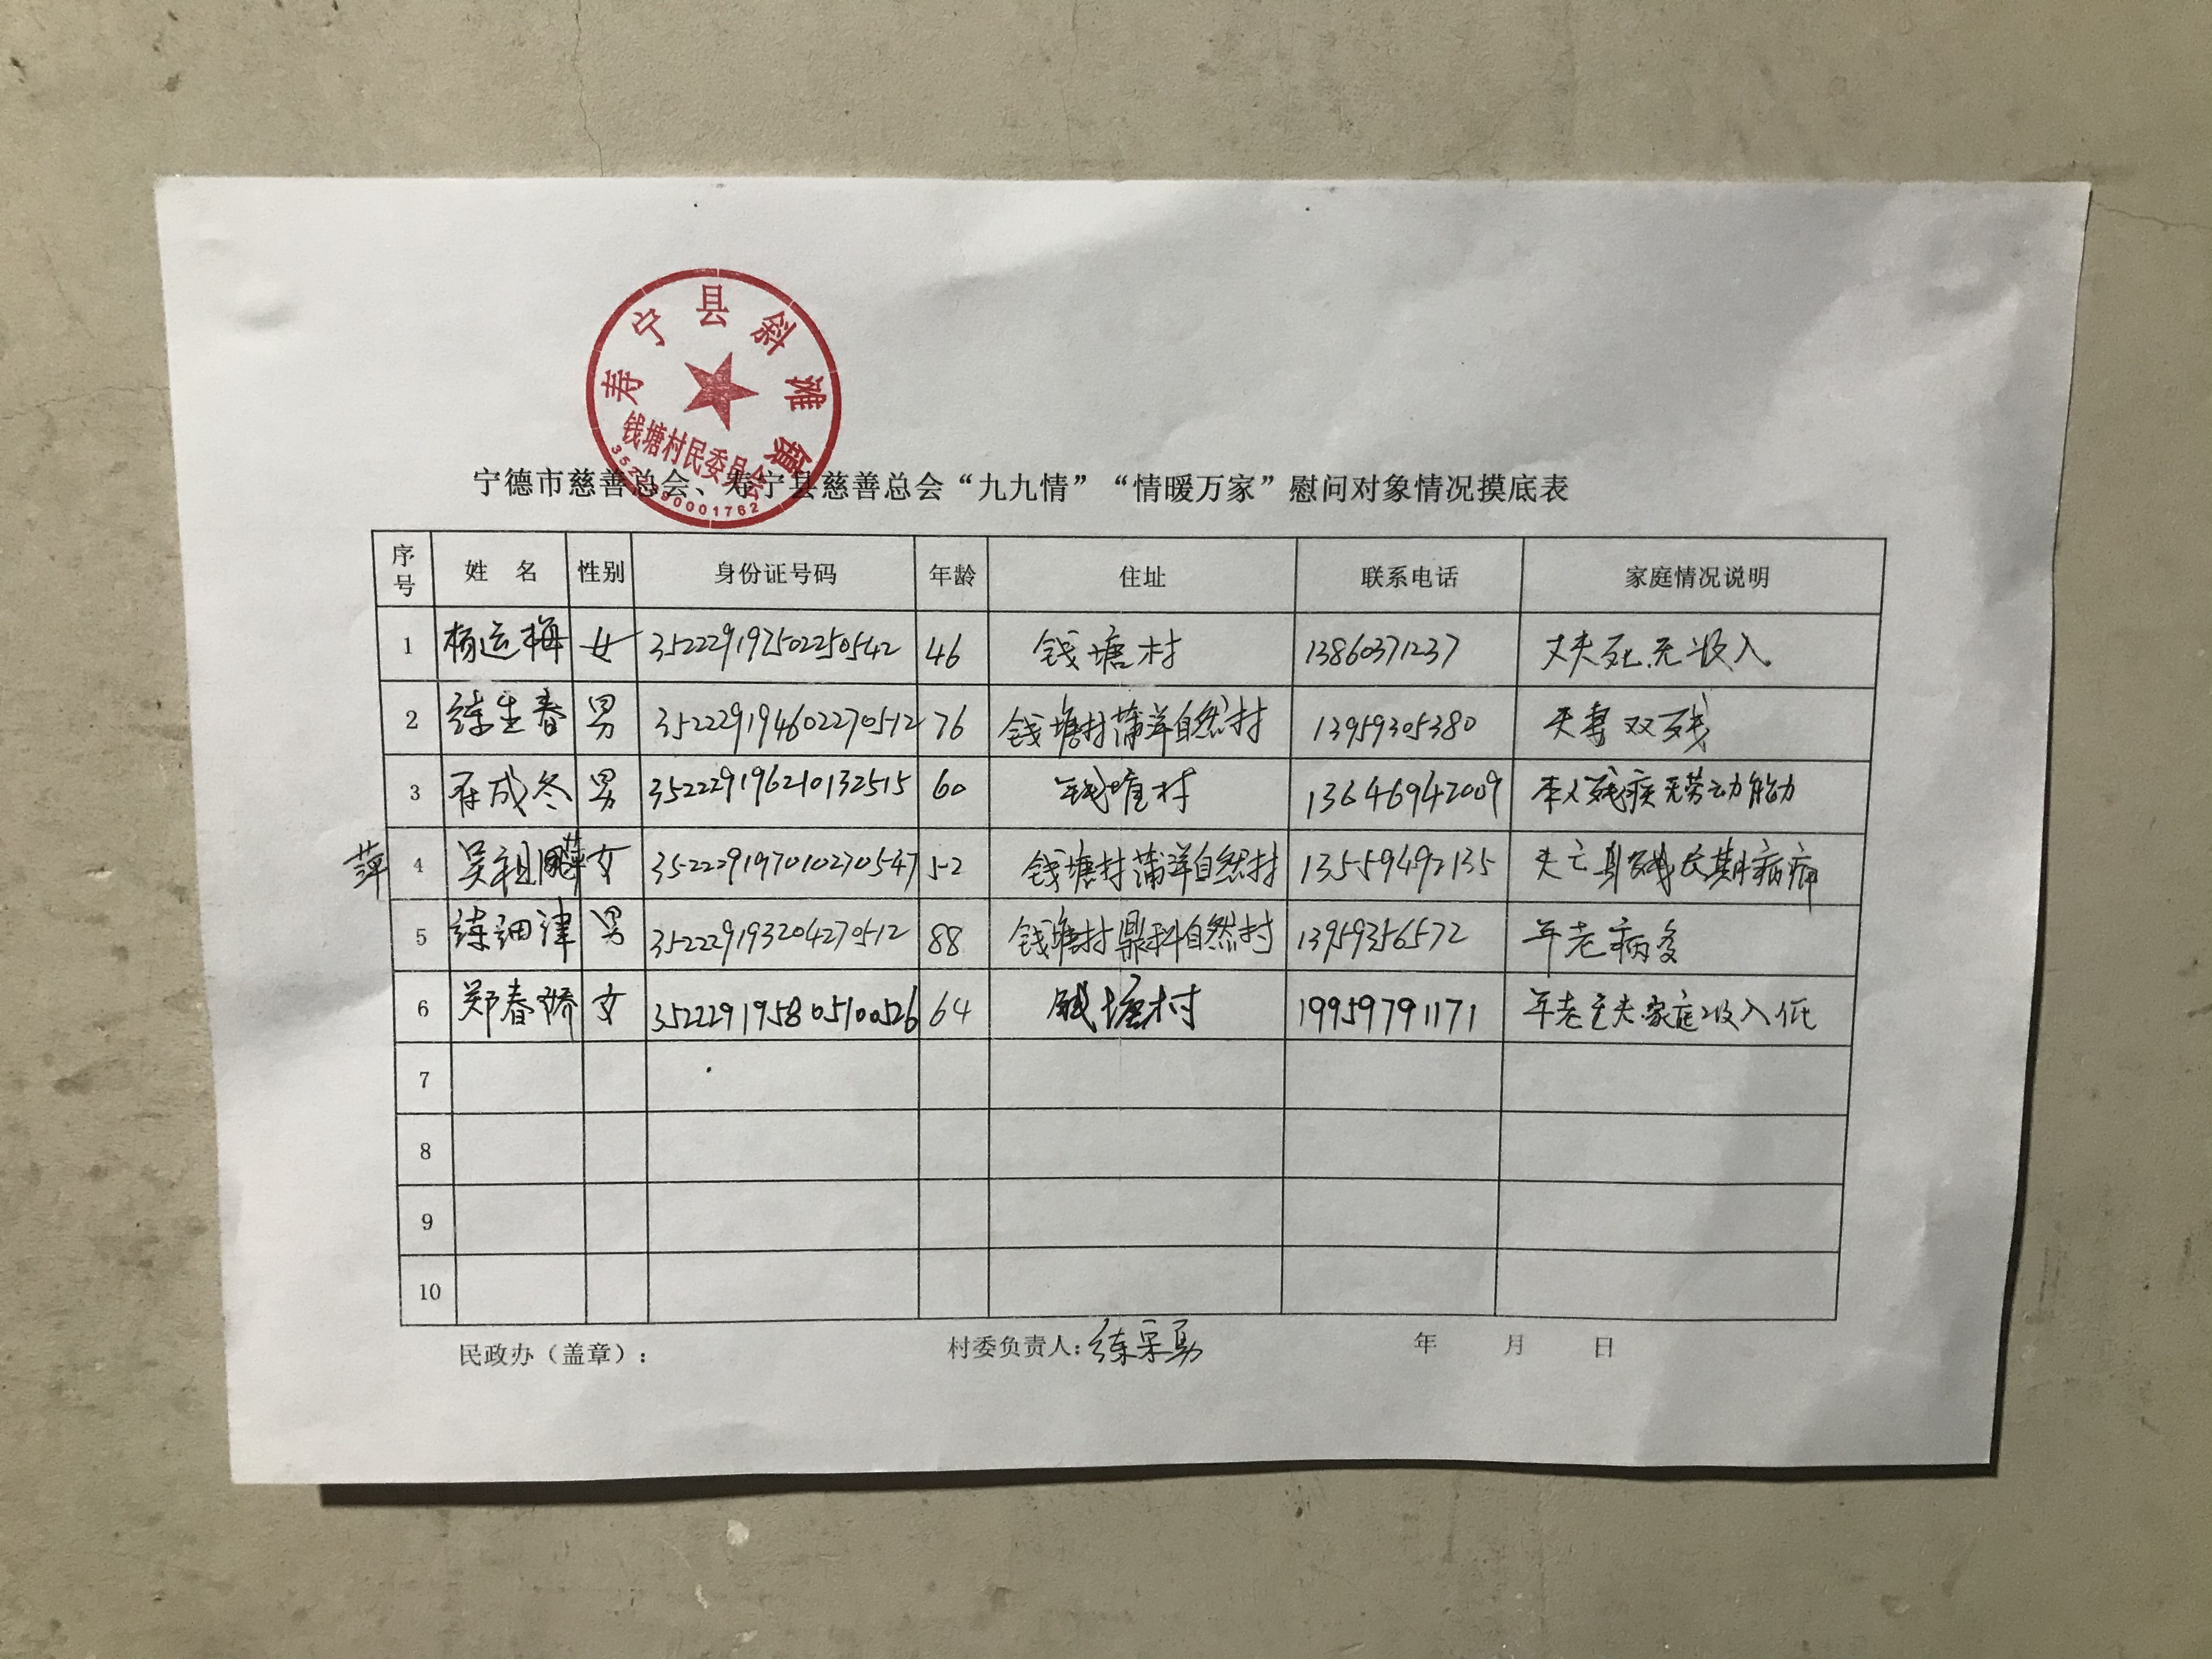 寿宁县斜滩镇
钱塘村民委员会
宁德市慈善总会、寿宁县慈善总会“九九情”“情暖万家”慰问对象情况摸底表
序号 姓 名 性别 身份证号码 年龄 住址 联系电话 家庭情况说明
1 杨运梅 女 352229197502250542 46 钱塘村 13860371237 丈夫死.无收入
2 练生春 男 352229194602270512 76 钱塘村蒲洋自然村 13959305380 夫妻双残
3 成冬 男 352229196210132515 60 钱塘村 13646942009 本人残疾无劳动能力
萍 4 吴祖 女 352229197010270547 52 钱塘村蒲洋自然村 13559492135 夫亡身残长期病痛
5 练细津 男 352229193204270512 88 钱塘村鼎科自然村 13959356572 年老病多
6 郑春娇 女 352229195805100526 64 钱塘村 19959791171 年老 夫.家庭收入低
7
8
9
10
民政办（盖章）： 村委负责人：练宗勇 年 月 日